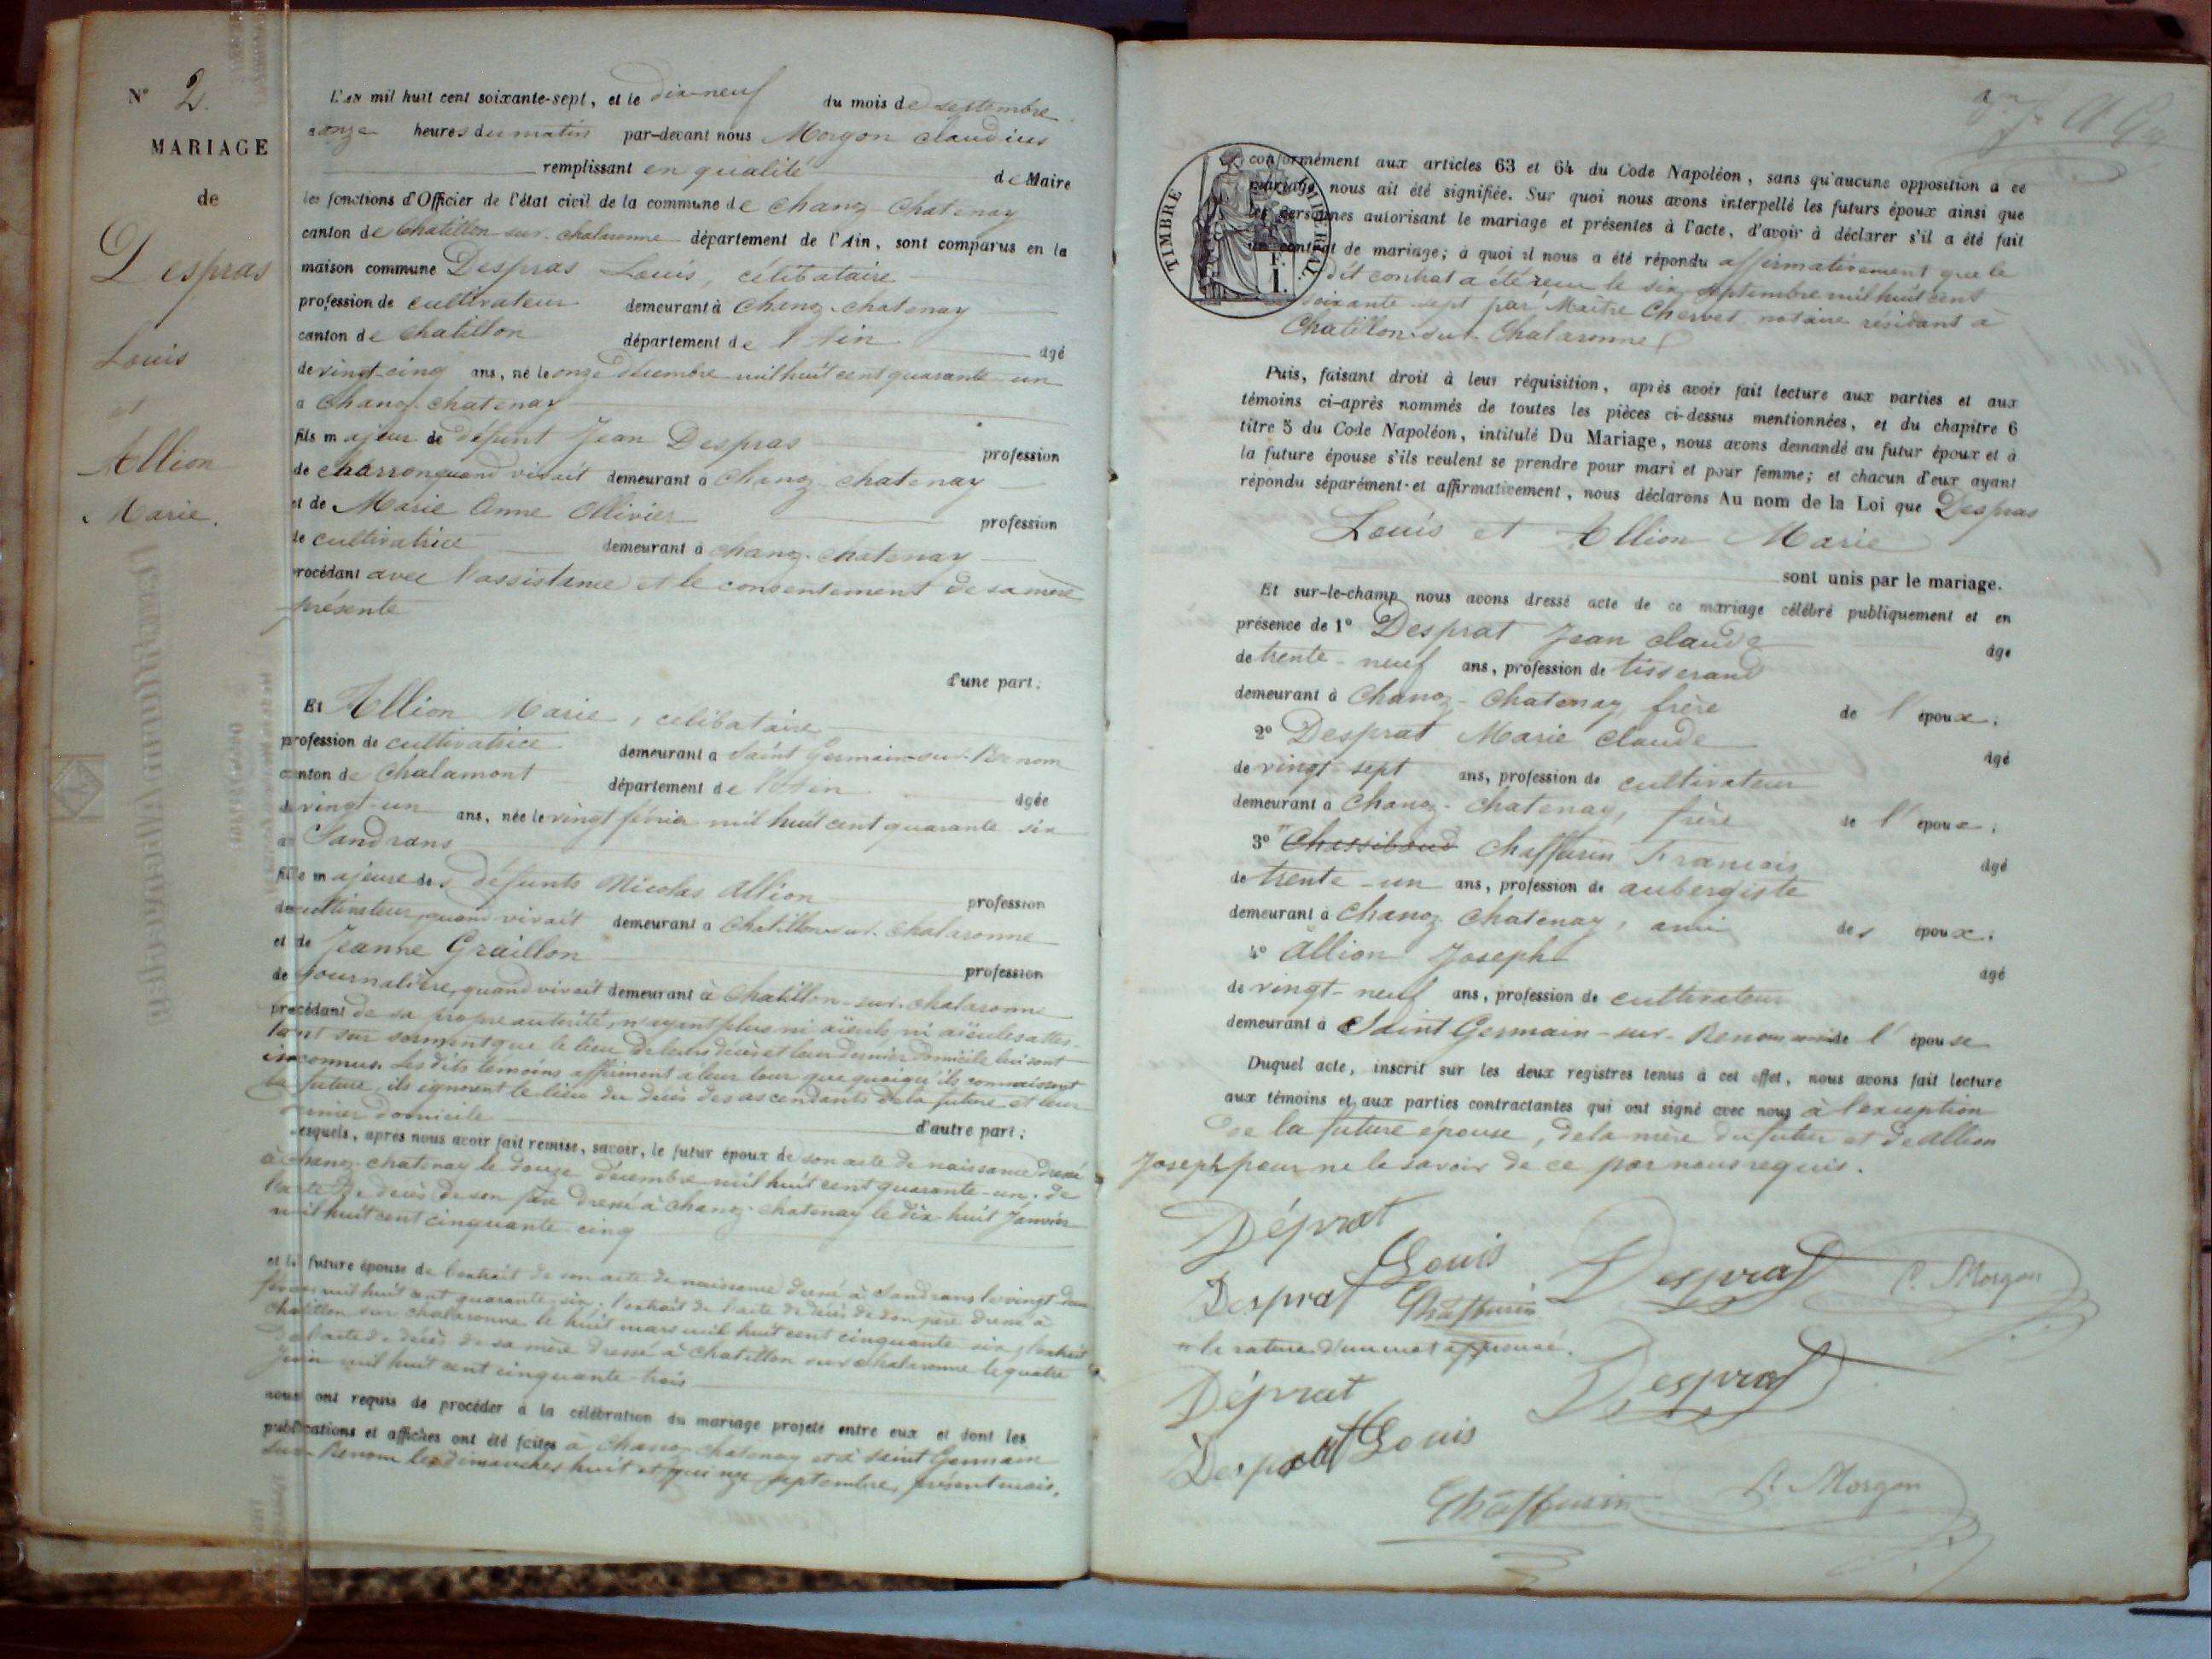 N° 2.
MARIAGE
de
Despras
Louis
et
Allion
Marie.
L'AN mil huit cent soixante-sept, et le dix-neuf du mois de septembre
à onze heures du matin par-devant nous Morgon claudius
remplissant en qualité de Maire
les fonctions d'Officier de l'état civil de la commune de Chanoz-Chatenay
canton de Chatillon-sur-chalaronne département de l'Ain, sont comparus en la
maison commune Despras Louis, célibataire
profession de cultivateur demeurant à Chanoz-chatenay
canton de Chatillon département de l'Ain âgé
de vingt-cinq ans, né le onze décembre mil huit cent quarante-un
à Chanoz-chatenay
fils majeur de défunt Jean Despras profession
de charron quand vivait demeurant à Chanoz-chatenay
et de Marie Anne Ollivier profession
de cultivatrice demeurant à chanoz-chatenay
procédant avec l'assistance et le consentement de sa mère
présente
d'une part;
Et Allion Marie, célibataire
profession de cultivatrice demeurant à Saint Germain-sur-Renom
canton de Chalamont département de l'Ain âgée
de vingt-un ans, née le vingt février mil huit cent quarante six
à Sandrans
fille majeure des défunts Nicolas Allion profession
de cultivateur, quand vivait demeurant à Chatillon-sur-Chalaronne
et de Jeanne Graillon profession
de journalière, quand vivait demeurant à Chatillon-sur-chalaronne
procédant de sa propre autorité, n'ayant plus ni aïeuls, ni aïeules attes-
tant sur serment que le lieu de leurs décès et leur dernier domicile lui sont
inconnus. Les dits témoins affirment à leur tour que quoiqu'ils connaissent
la future, ils ignorent le lieu du décès des ascendants de la future et leur
dernier domicile d'autre part;
Lesquels, après nous avoir fait remise, savoir, le futur époux de son acte de naissance dressé
à chanoz-chatenay le douze décembre mil huit cent quarante-un; de
l'acte de décès de son père dressé à chanoz-chatenay le dix huit Janvier
mil huit cent cinquante cinq
et la future épouse de l'extrait de son acte de naissance dressé à Sandrans le vingt-deux
février mil huit cent quarante-six; l'extrait de l'acte de décès de son père dressé à
chatillon sur chalaronne le huit mars mil huit cent cinquante six; l'extrait
de l'acte de décès de sa mère dressé à chatillon sur chalaronne le quatre
Juin mil huit cent cinquante-trois
nous ont requis de procéder à la célébration du mariage projeté entre eux et dont les
publications et affiches ont été faites à Chanoz-chatenay et à Saint Germain
sur-Renom les dimanches huit et quinze septembre, présent mois,
TIMBRE IMPÉRIAL.
F.
1.
conformément aux articles 63 et 64 du Code Napoléon, sans qu'aucune opposition à ce
mariage nous ait été signifiée. Sur quoi nous avons interpellé les futurs époux ainsi que
les personnes autorisant le mariage et présentes à l'acte, d'avoir à déclarer s'il a été fait
un contrat de mariage; à quoi il nous a été répondu affirmativement que le
dit contrat a été reçu le six septembre mil huit cent
soixante-sept par Maître Chervet notaire résidant à
Chatillon-sur-Chalaronne
Puis, faisant droit à leur réquisition, après avoir fait lecture aux parties et aux
témoins ci-après nommés de toutes les pièces ci-dessus mentionnées, et du chapitre 6
titre 5 du Code Napoléon, intitulé Du Mariage, nous avons demandé au futur époux et à
la future épouse s'ils veulent se prendre pour mari et pour femme; et chacun d'eux ayant
répondu séparément et affirmativement, nous déclarons Au nom de la Loi que Despras
Louis et Allion Marie
sont unis par le mariage.
Et sur-le-champ nous avons dressé acte de ce mariage célébré publiquement et en
présence de 1° Desprat Jean claude âgé
de trente-neuf ans, profession de tisserand
demeurant à Chanoz-Chatenay, frère de l'époux;
2° Desprat Marie claude âgé
de vingt-sept ans, profession de cultivateur
demeurant à Chanoz-Chatenay, frère de l'époux;
3° Chassiboud Chaffurin Francois âgé
de trente-un ans, profession de aubergiste
demeurant à Chanoz Chatenay, ami des époux;
4° Allion Joseph âgé
de vingt-neuf ans, profession de cultivateur
demeurant à Saint Germain-sur-Renom de l'épouse
Duquel acte, inscrit sur les deux registres tenus à cet effet, nous avons fait lecture
aux témoins et aux parties contractantes qui ont signé avec nous à l'exception
de la future épouse, de la mère du futur et de Allion
Joseph pour ne le savoir de ce par nous requis.
Déprat
Louis
Desprat Chaffurin Despras C. Morgon
la rature d'un mot approuvé.
Déprat Despras
Desprat Louis
Chaffurin C. Morgon